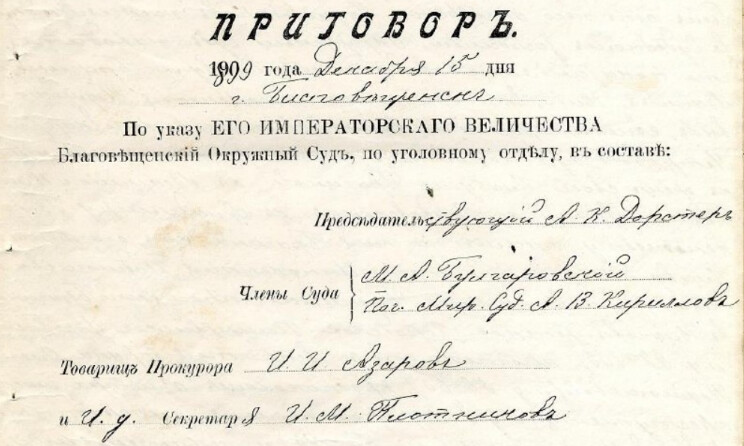 ПРИГОВОРЪ.
1899 года Декабря 15 дня
г. Благовѣщенскъ
По указу ЕГО ИМПЕРАТОРСКАГО ВЕЛИЧЕСТВА
Благовѣщенскій Окружный Судъ, по уголовному отдѣлу, въ составѣ:
Предсѣдательствующій А. К. Дорстеръ
М. А. Булгаровскій
Члены Суда
Поч. Мир. Суд. А. В. Кирилловъ
Товарищъ Прокурора И. И. Азаровъ
и И. д. Секретаря И. М. Плотниковъ